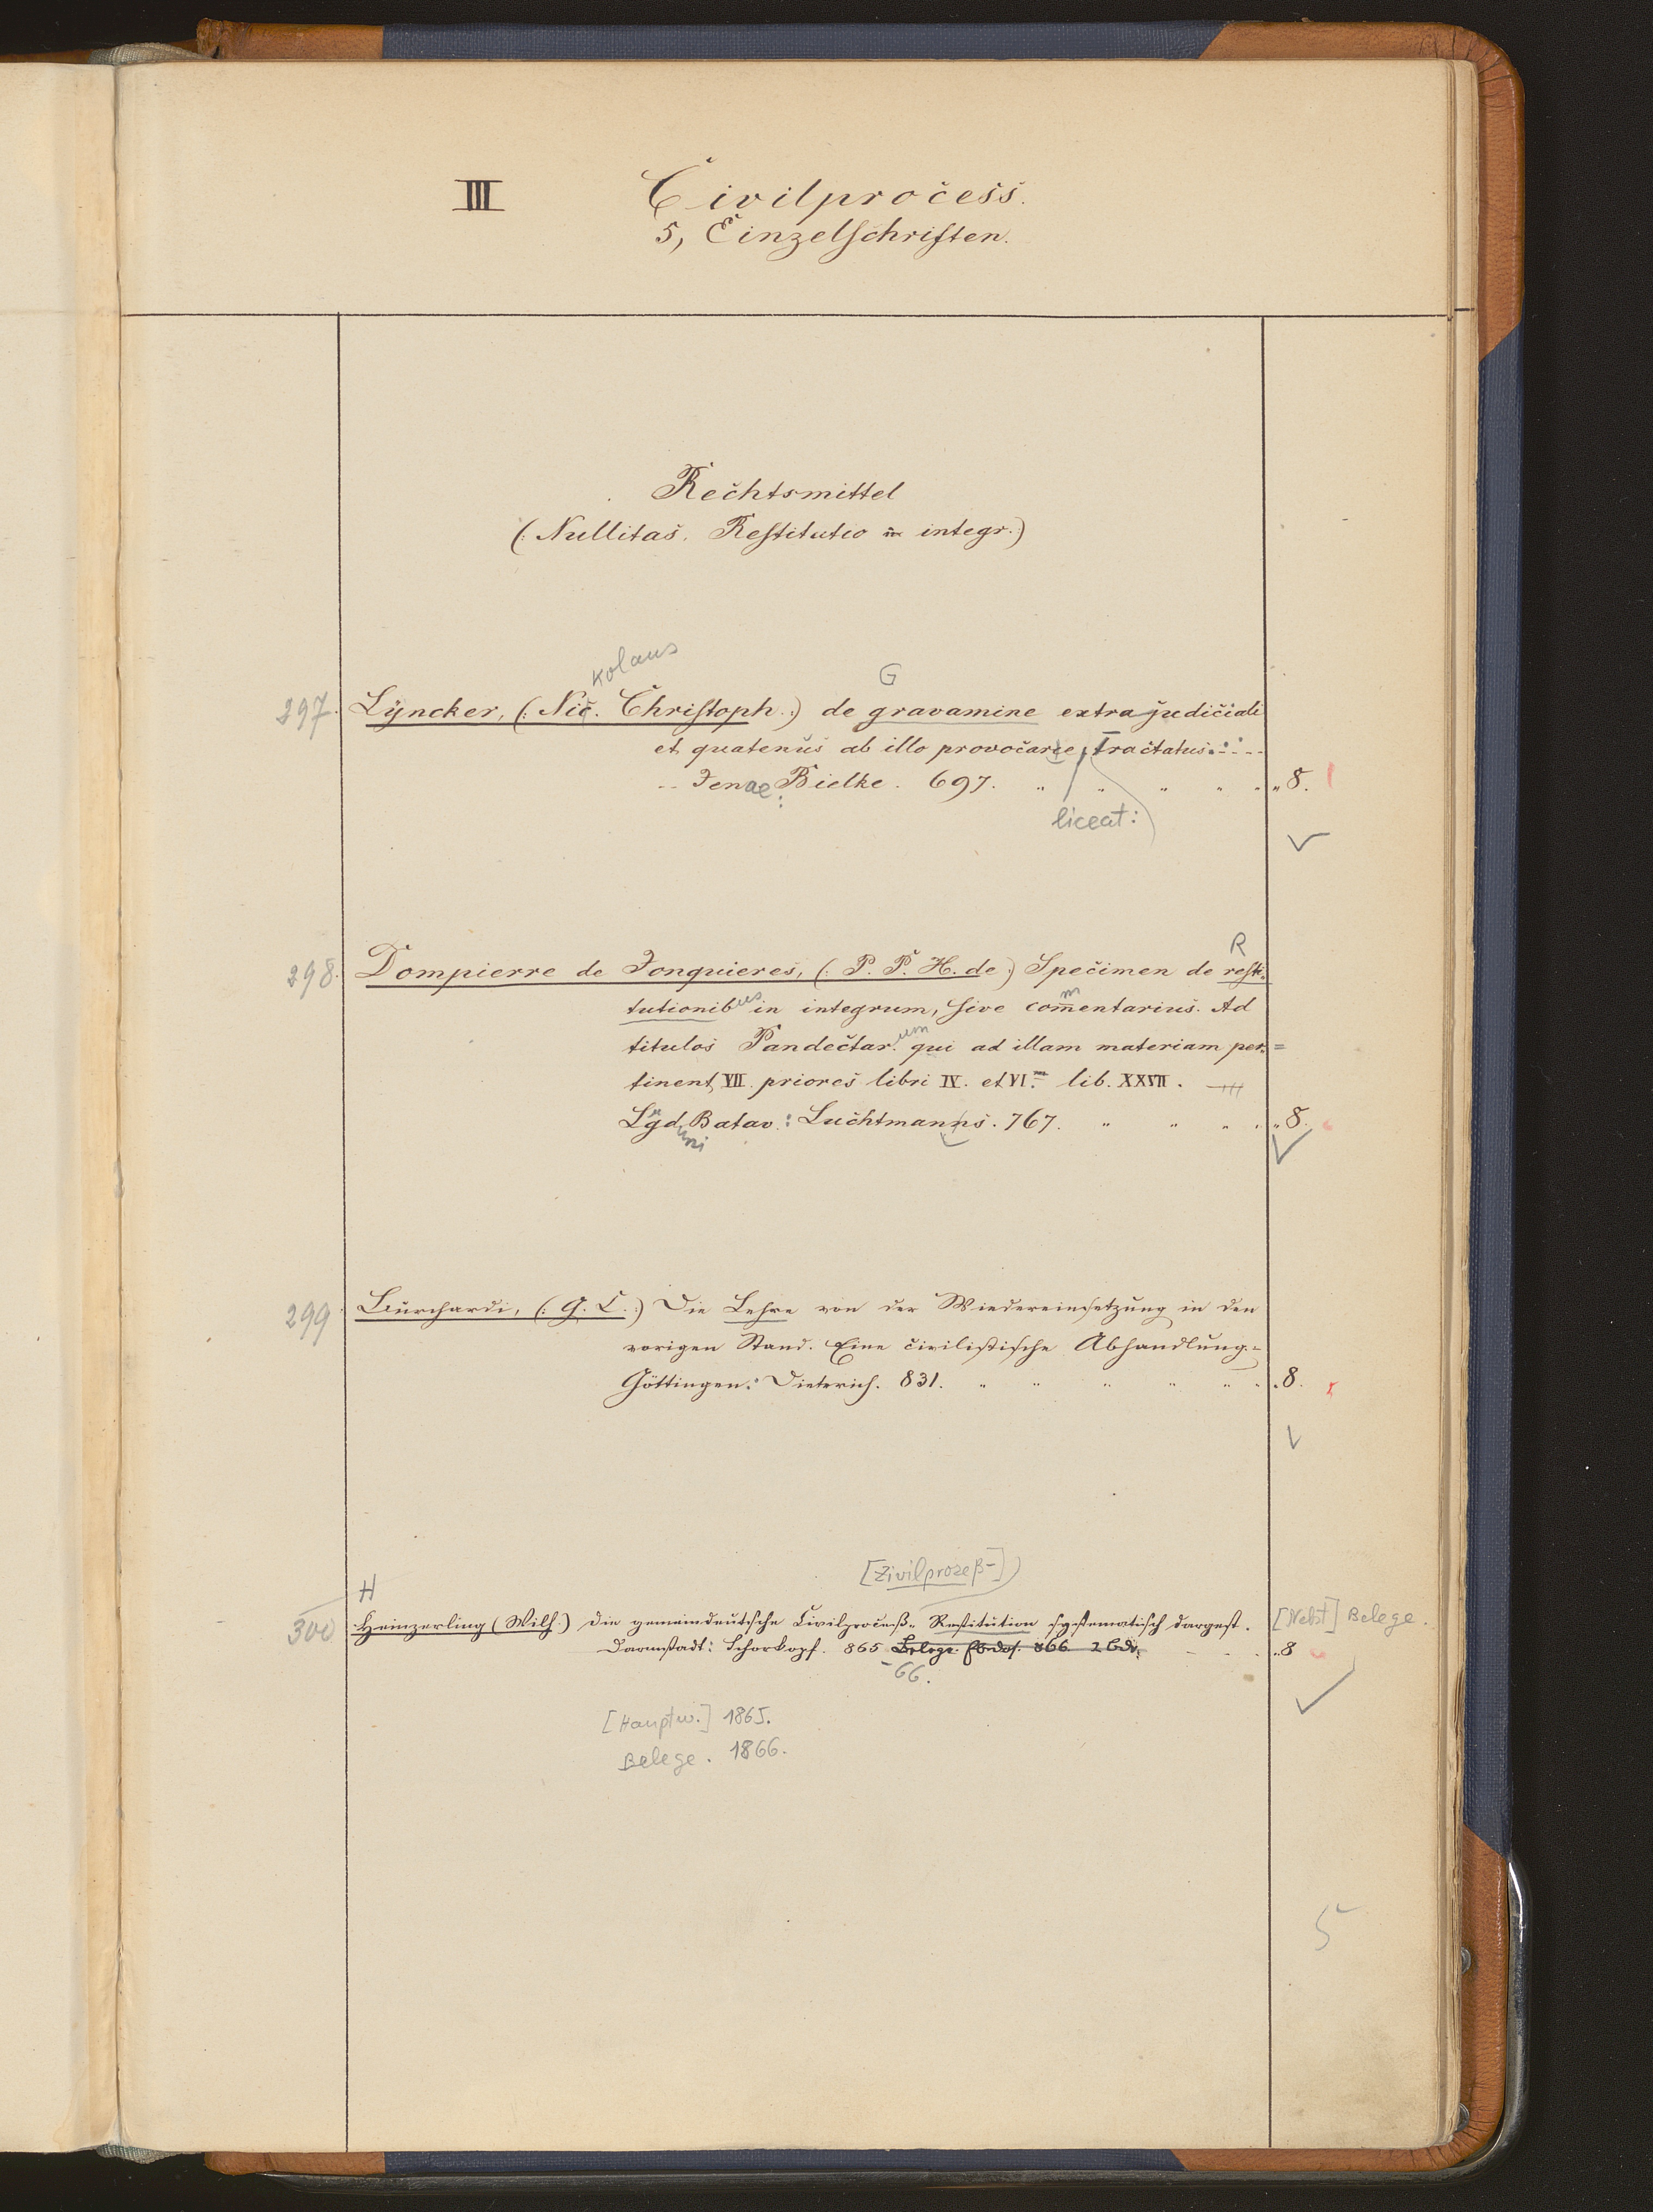 III Civilprocess.
5, Einzelschriften.
Rechtsmittel
(: Nullitas. Restitutio in integr.)
kolaus
G
297. Lyncker, (: Nic. Christoph.:) de gravamine extrajudiciali
et quatenus ab illo provocare, Tractatus.
Jenae: Bielke. 697. " " " " " 8.
liceat:
R
298. Dompierre de Jonquieres, (: P. P. H. de:) Specimen de resti-
tutionibus in integrum, sive commentarius. Ad
titulos Pandectarum qui ad illam materiam per=
tinent, VII. priores libri IV. et VI.m lib. XXVII.
Lugd. Batav.: Luchtmanns. 767. " " " " 8.
uni
299. Burchardi, (: G. C.:) Die Lehre von der Wiedereinsetzung in den
vorigen Stand. Eine civilistische Abhandlung.
Göttingen: Dieterich. 831. " " " " " 8.
[Zivilprozeß-]
H
300 Heinzerling (Wilh.) Die gemeindeutsche Civilproceß-Restitution systematisch dargest. [Nebst] Belege.
Darmstadt: Schorkopf. 865 Belege 866 2 Bde. 8
-66.
[Hauptw.] 1865.
Belege. 1866.
5